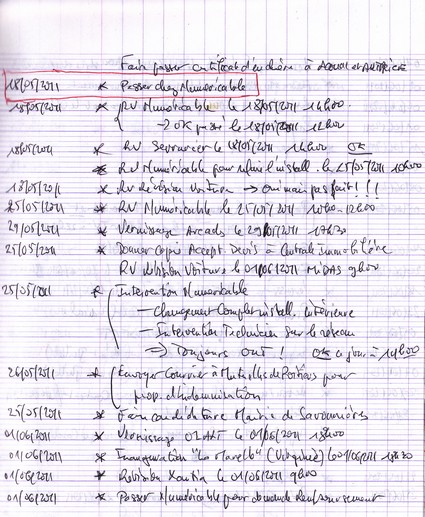 Faire passer certificat d'enchère à
18/05/2011 * Passer chez Numéricable
18/05/2011 * RV Numéricable le 18/05/2011 14h00
→ OK passé le 18/05/2011 12h00
18/05/2011 * RV Serrurier le 18/05/2011 14h00 OK
* RV Numéricable pour refaire l'install. le 25/05/2011 10h00
18/05/2011 * RV Révision Voiture → Oui mais pas fait ! ! !
25/05/2011 * RV Numéricable le 25/05/2011 10h00 - 12h00
29/05/2011 * Vernissage Arcads le 29/05/2011
25/05/2011 * Donner Copie Accept. Devis à Centrale Immobilière
RV Révision Voiture le 01/06/2011 MIDAS 9h00
25/05/2011 * Intervention Numéricable
— Changement Complet install. intérieure
— Intervention Technicien sur le réseau
→ Toujours OUT ! OK à jour à 14h00
26/05/2011 * Envoyer Courrier à Mutuelles de Poitiers pour
prop. d'Indemnisation
25/05/2011 * Mairie de Savonnières
01/06/2011 * Vernissage le 01/06/2011 18h00
01/06/2011 * Inauguration "La Marelle" le 01/06/2011 18h30
01/06/2011 * Révision le 01/06/2011 9h00
01/06/2011 * Passer Numéricable pour demande Remboursement